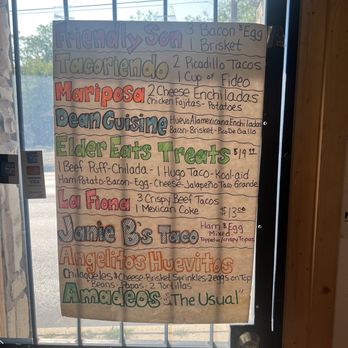 Friendly Son 3 Bacon & Egg
1 Brisket
Tacoriendo 2 Picadillo Tacos
1 Cup of Fideo
Mariposa 2 Cheese Enchiladas
Chicken Fajitas - Potatoes
Dean Cuisine Huevo Alamexicana Enchiladas
Bacon - Brisket - Pico De Gallo
Elder Eats Treats $19
1 Beef Puff - Chilada - 1 Hugo Taco - Kool-aid
Ham - Potato - Bacon - Egg - Cheese - Jalapeño Taco Grande
La Fiona 3 Crispy Beef Tacos
1 Mexican Coke $13
Janie B's Taco Ham & Egg
Mixed
Topped w/ Crispy Tripas
Angelitos Huevitos
Chilaquiles & Cheese - Brisket Sprinkles - 2 eggs on Top
Beans - Papas - 2 Tortillas
Amadeos "The Usual"